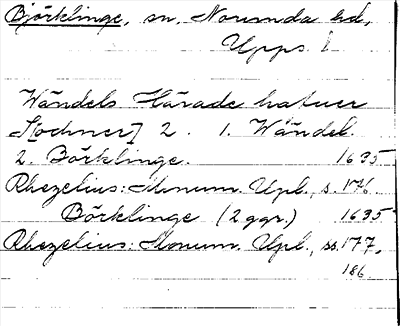 Björklinge, sn, Norunda hd,
Upps l
Wändels Härade hafuer
S[ochner] 2. 1. Wändel.
2. Börklinge. 1635
Rhezelius: Monum. Upl., s. 176
Börklinge (2 ggr.) 1635
Rhezelius: Monum. Upl., ss. 177,
186